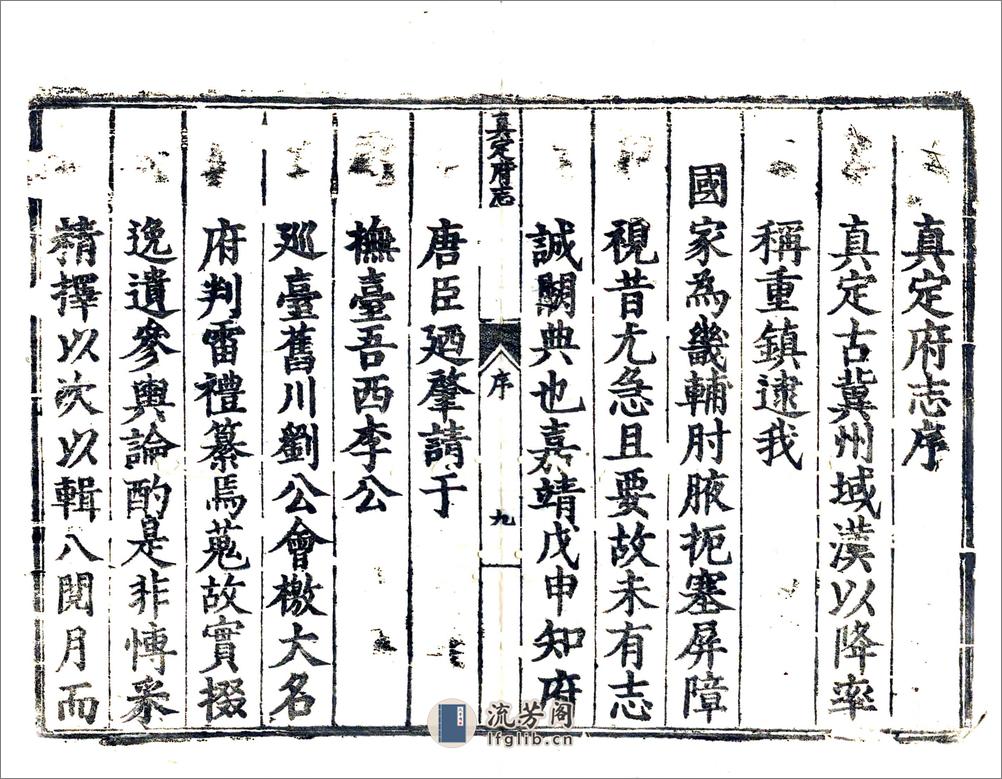 真定府志序
真定古冀州域漢以降率
稱重鎮逮我
國家為畿輔肘腋扼塞屏障
視昔尤急且要故未有志
誠闕典也嘉靖戊申知府
真定府志
序
九
唐臣廼肇請于
撫臺吾西李公
廵臺舊川劉公會檄大名
府判雷禮纂焉蒐故實掇
逸遺參輿論酌是非愽采
精擇以次以輯八閱月而
流芳阁
lfglib.cn